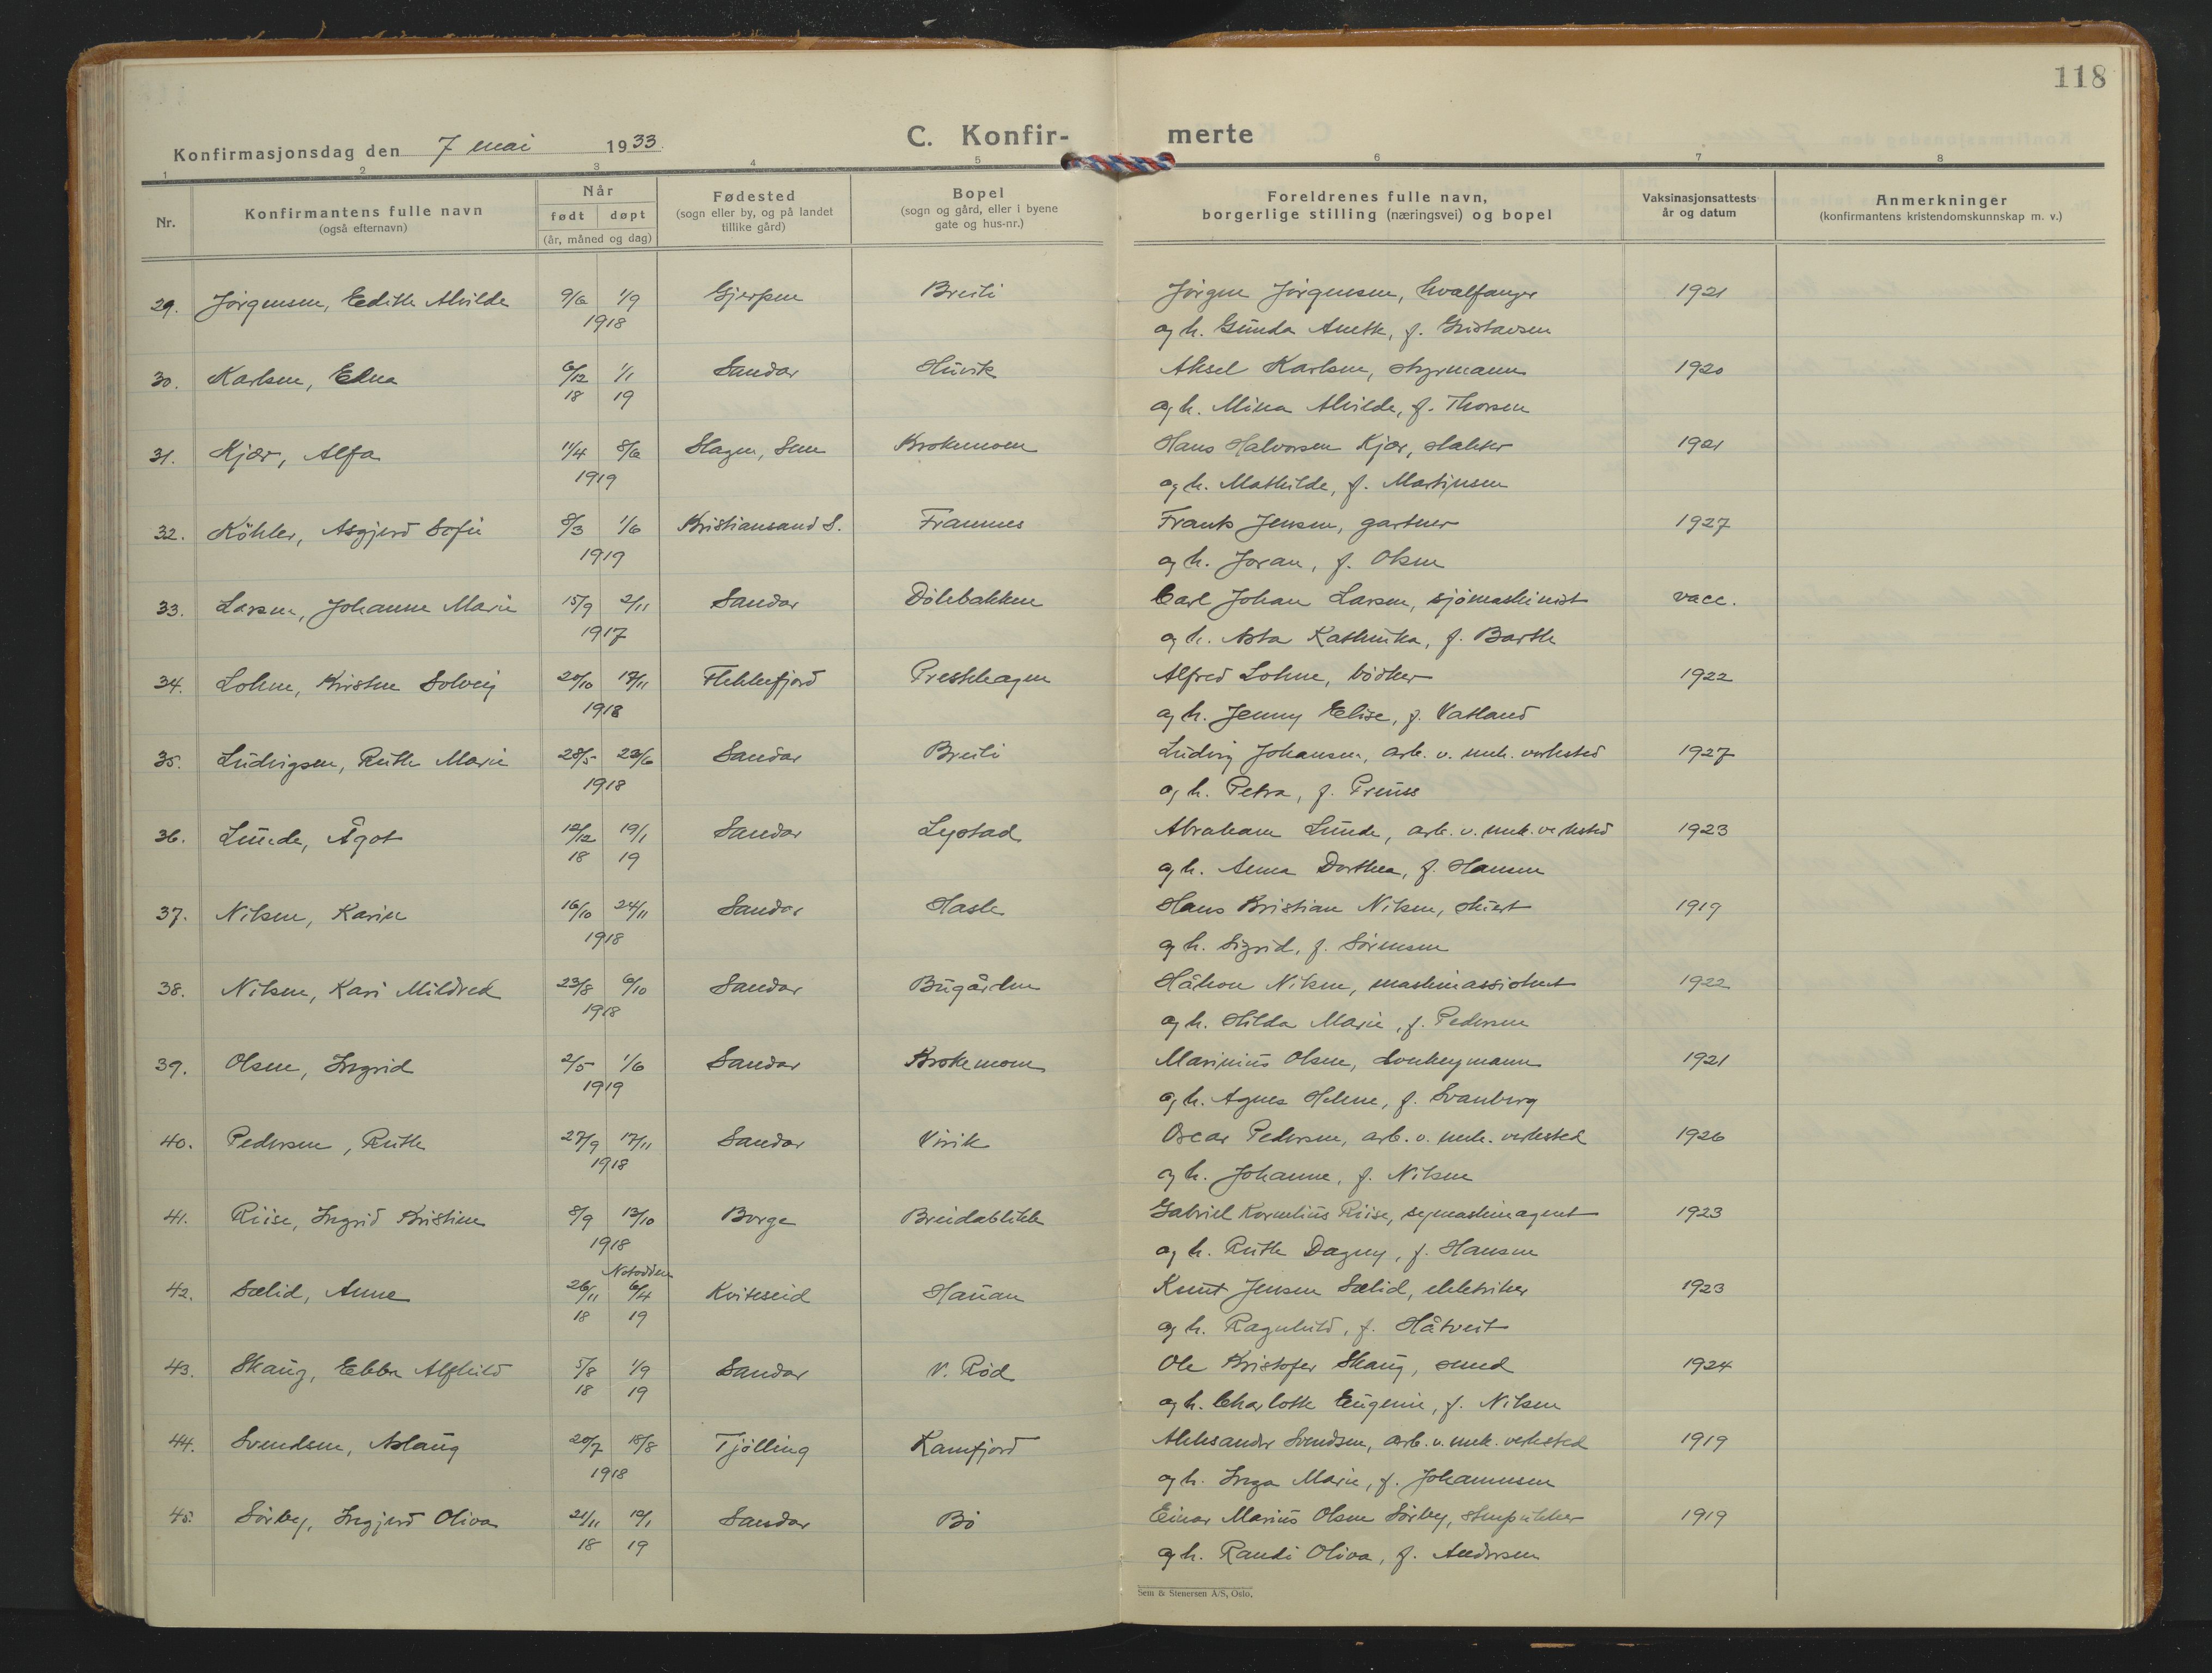 118
Konfirmasjonsdag den 7 mai 1933. C. Konfir- merte
1 2 3 4 5 6 7 8
Nr. Konfirmantens fulle navn (også efternavn) Når født døpt (år, måned og dag) Fødested (sogn eller by, og på landet tillike gård) Bopel (sogn og gård, eller i byene gate og hus-nr.) Foreldrenes fulle navn, borgerlige stilling (næringsvei) og bopel Vaksinasjonsattests år og datum Anmerkninger (konfirmantens kristendomskunnskap m. v.)
29. Jörgensen, Edith Alvilde 9/6 1/9 Gjerpen Breili Jörgen Jörgensen, hvalfanger 1921
1918 og h. Gunda Anette, f. Gustavsen
30. Karlsen, Edna 6/12 1/1 Sandar Huvik Aksel Karlsen, styrmann 1920
18 19 og h. Mina Alvilde, f. Thorsen
31. Kjær, Alfa 11/4 8/6 Slagen, Sem Krokemoen Hans Halvorsen Kjær, slakter 1921
1919 og h. Mathilde, f. Martinsen
32. Köhler, Asgjerd Sofie 8/3 1/6 Kristiansand S. Framnes Frank Jensen, gartner 1927
1919 og h. Joran, f. Olsen
33. Larsen, Johanne Marie 15/9 2/11 Sandar Dölebakken Carl Johan Larsen, sjömaskinist vacc.
1917 og h. Asta Kathinka, f. Barth
34. Lohne, Kirsten Solveig 20/10 17/11 Flekkefjord Prestehagen Alfred Lohne, bödker 1922
1918 og h. Jenny Elise, f. Vatland
35. Ludvigsen, Ruth Marie 28/5 23/6 Sandar Breili Ludvig Johansen, arb. v. mek. verksted 1927
1918 og h. Petra, f. Preuss
36. Lunde, Ågot 12/12 19/1 Sandar Lystad Abraham Lunde, arb. v. mek. verksted 1923
18 19 og h. Anna Dorthea, f. Hansen
37. Nilsen, Karin 16/10 24/11 Sandar Hasle Hans Kristian Nilsen, stuert 1919
1918 og h. Sigrid, f. Sörensen
38. Nilsen, Kari Mildred 23/8 6/10 Sandar Bugården Håkon Nilsen, maskinassistent 1922
1918 og h. Hilda Marie, f. Pedersen
39. Olsen, Ingrid 2/5 1/6 Sandar Krokemoen Marinius Olsen, donkeymann 1921
1919 og h. Agnes Helene, f. Svanberg
40. Pedersen, Ruth 27/9 17/11 Sandar Virik Oscar Pedersen, arb. v. mek. verksted 1926
1918 og h. Johanne, f. Nilsen
41. Riise, Ingrid Kristine 8/9 13/10 Borge Breidablikk Gabriel Kornelius Riise, symaskinagent 1923
1918 og h. Ruth Dagny, f. Hansen
Notodden
42. Sælid, Anne 26/11 6/4 Kviteseid Hauan Knut Jensen Sælid, elektriker 1923
18 19 og h. Ragnhild, f. Håtveit
43. Skaug, Ebba Alfhild 5/8 1/9 Sandar V. Röd Ole Kristofer Skaug, smed 1924
18 19 og h. Charlotte Eugenie, f. Nilsen
44. Svendsen, Aslaug 20/7 18/8 Tjölling Kamfjord Aleksander Svendsen, arb. v. mek. verksted 1919
1918 og h. Inga Marie, f. Johannesen
45. Sörby, Ingjerd Oliva 21/11 12/1 Sandar Bö Einar Marius Olsen Sörby, 1919
18 19 og h. Randi Oliva, f. Andersen
Sem & Stenersen A/S, Oslo.